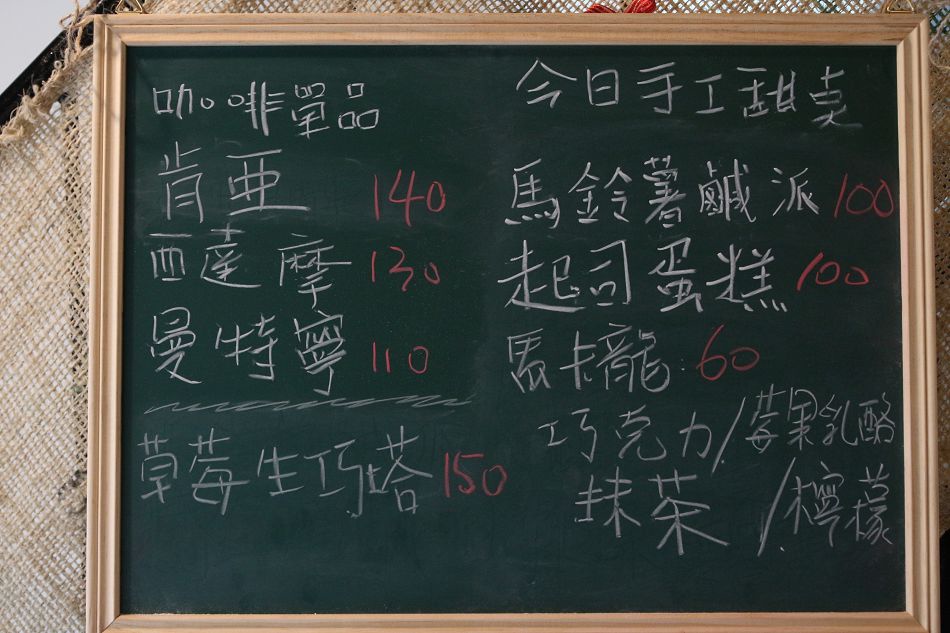 咖啡單品
肯亞 140
西達摩 130
曼特寧 110
草莓生巧塔 150
今日手工甜莫
馬鈴薯鹹派 100
起司蛋糕 100
馬卡龍: 60
巧克力/莓果乳酪
抹茶/檸檬